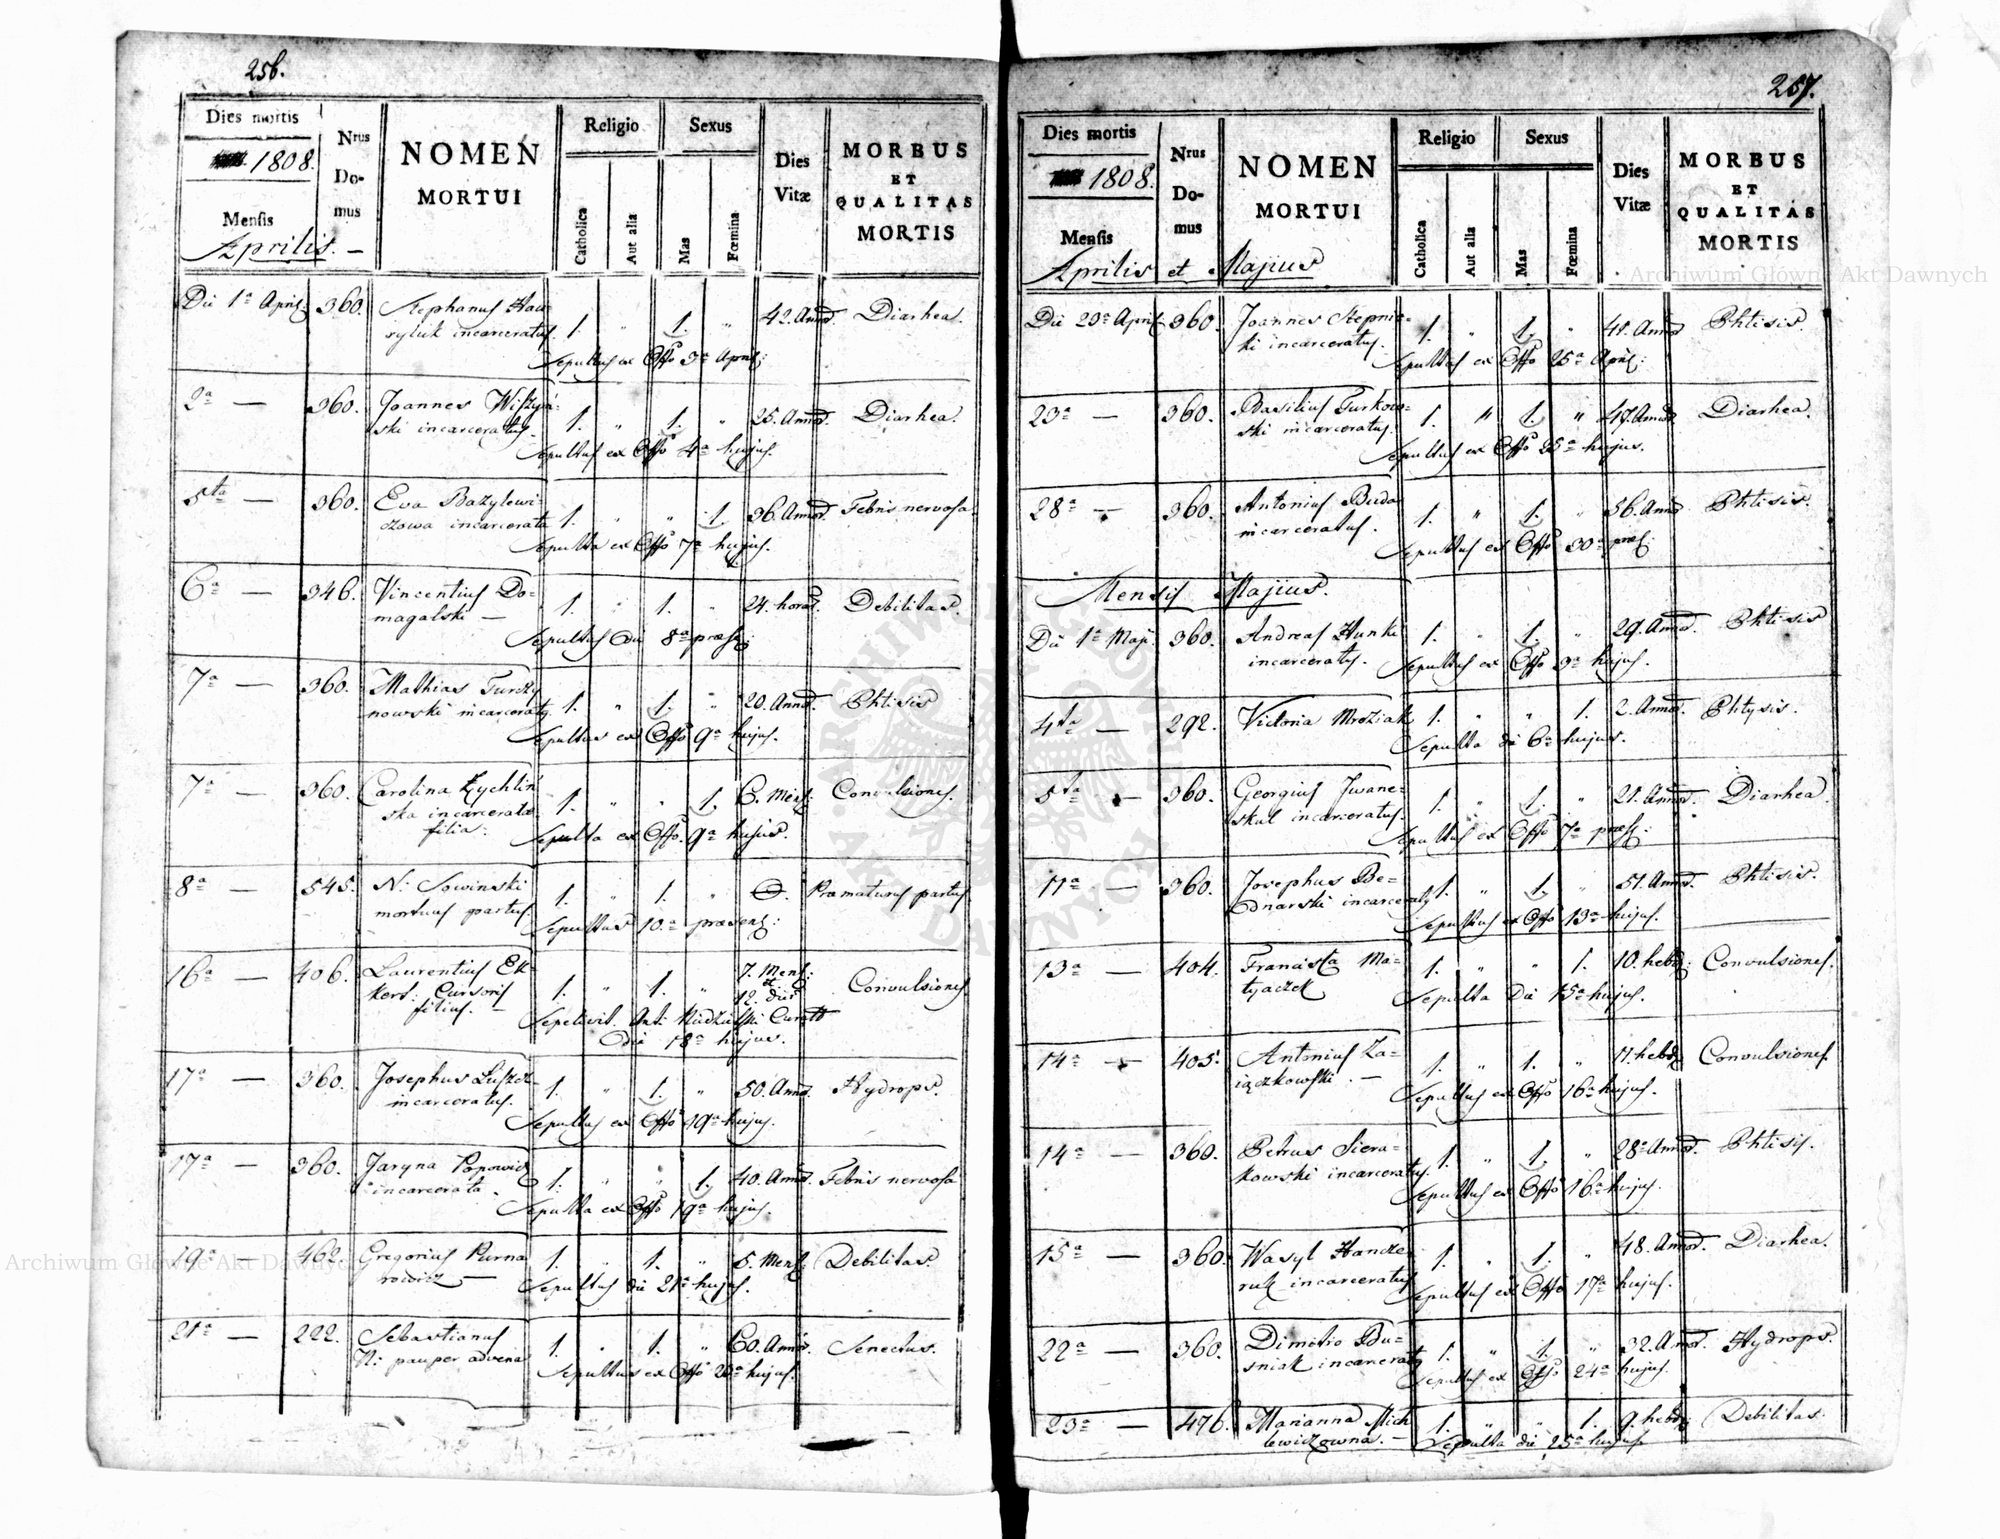 256.
Dies mortis
1808.
Mensis
Aprilis. —
Nrus
Do-
mus
NOMEN
MORTUI
Religio
Catholica
Aut alia
Sexus
Mas
Fœmina
Dies
Vitæ
MORBUS
ET
QUALITAS
MORTIS
Die 1ª April: 360. Stephanus Haw-
ryluk incarceratus 1. " 1. " 42. Annor. Diarhea.
Sepultus ex Offo 3ª April:
2ª — 360. Joannes Wiszyń-
ski incarceratus. 1. " 1. " 25. Annor. Diarhea.
Sepultus ex Offo 4ª hujus.
5ta — 360. Eva Bazylewi-
czowa incarcerata 1. " " 1. 36. Annor. Febris nervosa.
Sepulta ex Offo 7ª hujus.
6ª — 346. Vincentius Do-
magalski — 1. " 1. " 24. horar. Debilitas.
Sepultus Die 8ª præs:
7ª — 360. Mathias Turczy
nowski incarceratus 1. " 1. " 20. Annor. Phtisis
Sepultus ex Offo 9ª hujus.
7ª — 360. Carolina Zychliń
ska incarceratæ
filia. 1. " " 1. 6. Mens: Convulsiones.
Sepulta ex Offo. 9ª hujus.
8ª — 545. N: Sowinski
mortuus partus. 1. " 1. " 0. Præmaturus partus
Sepultus 10ª præsens:
16ª — 406. Laurentius Ek-
kert: Cursoris
filius. — 1. " 1. " 7. Mens:
et
12. dier Convulsiones
Sepelivit. Ant:
Die 18ª hujus.
17ª — 360. Josephus
incarceratus. 1. " 1. " 50. Annor. Hydrops.
Sepultus ex Offo 19ª hujus.
17ª — 360. Jaryna Popowicz
incarcerata. 1. " " 1. 40. Annor. Febris nervosa
Sepulta ex Offo 19ª hujus.
19ª — 462. Gregorius Purna
rowicz — 1. " 1. " 5. Mens: Debilitas.
Sepultus die 21ª hujus.
21ª — 222. Sebastianus
N: pauper advena 1. " 1. " 60. Annor. Senectus.
Sepultus ex Offo 23ª hujus.
257.
Dies mortis
1808.
Mensis
Aprilis et Majus
Nrus
Do-
mus
NOMEN
MORTUI
Religio
Catholica
Aut alia
Sexus
Mas
Fœmina
Dies
Vitæ
MORBUS
ET
QUALITAS
MORTIS
Die 23ª April: 360. Joannes Stepnic-
ki incarceratus. 1. " 1. " 41. Annor Phtisis.
Sepultus ex Offo 25ª April:
23ª — 360. Basilius Turkow-
ski incarceratus. 1. " 1. " 47. Annor. Diarhea.
Sepultus ex Offo 25ª hujus.
28ª — 360. Antonius Buda
incarceratus. 1. " 1. " 56. Annor Phtisis.
Sepultus ex Offo 30ª præs:
Mensis Majus.
Die 1ª Maji. 360. Andreas Hunki
incarceratus. 1. " 1. " 29. Annor. Phtisis
Sepultus ex Offo 3ª hujus.
4ta — 292. Victoria Mroziak 1. " " 1. 2. Annor. Phtysis.
Sepulta die 6ª hujus.
5ta — 360. Georgius Iwane-
skul incarceratus. 1. " 1. " 21. Annor. Diarhea.
Sepultus ex Offo 7ª præs:
11ª — 360. Josephus Be-
dnarski incarceratus 1. " 1. " 51. Annor. Phtisis.
Sepultus ex Offo 13ª hujus.
13ª — 404. Francisca Ma-
tyaczek 1. " " 1. 10. hebd: Convulsiones.
Sepulta Die 15ª hujus.
14ª — 405. Antonius Za-
iączkowski. — 1. " 1. " 11. hebd: Convulsiones
Sepultus ex Offo 16ª hujus.
14ª — 360. Petrus Siera-
kowski incarceratus. 1. " 1. " 28. Annor. Phtisis.
Sepultus ex Offo 16ª hujus.
15ª — 360. Wasyl Hancze
ruk incarceratus 1. " 1. " 48. Annor. Diarhea.
Sepultus ex Offo 17ª hujus.
22ª — 360. Dimitro Bu-
sniak incarceratus 1. " 1. " 32. Annor. Hydrops.
Sepultus ex Offo 24ª hujus.
23ª — 476. Marianna Mich
lewiczowna. — 1. " " 1. 9. hebd: Debilitas.
Sepulta die 25ª hujus
Archiwum Główne Akt Dawnych
Archiwum Główne Akt Dawnych
ARCHIWUM GŁÓWNE
AKT DAWNYCH